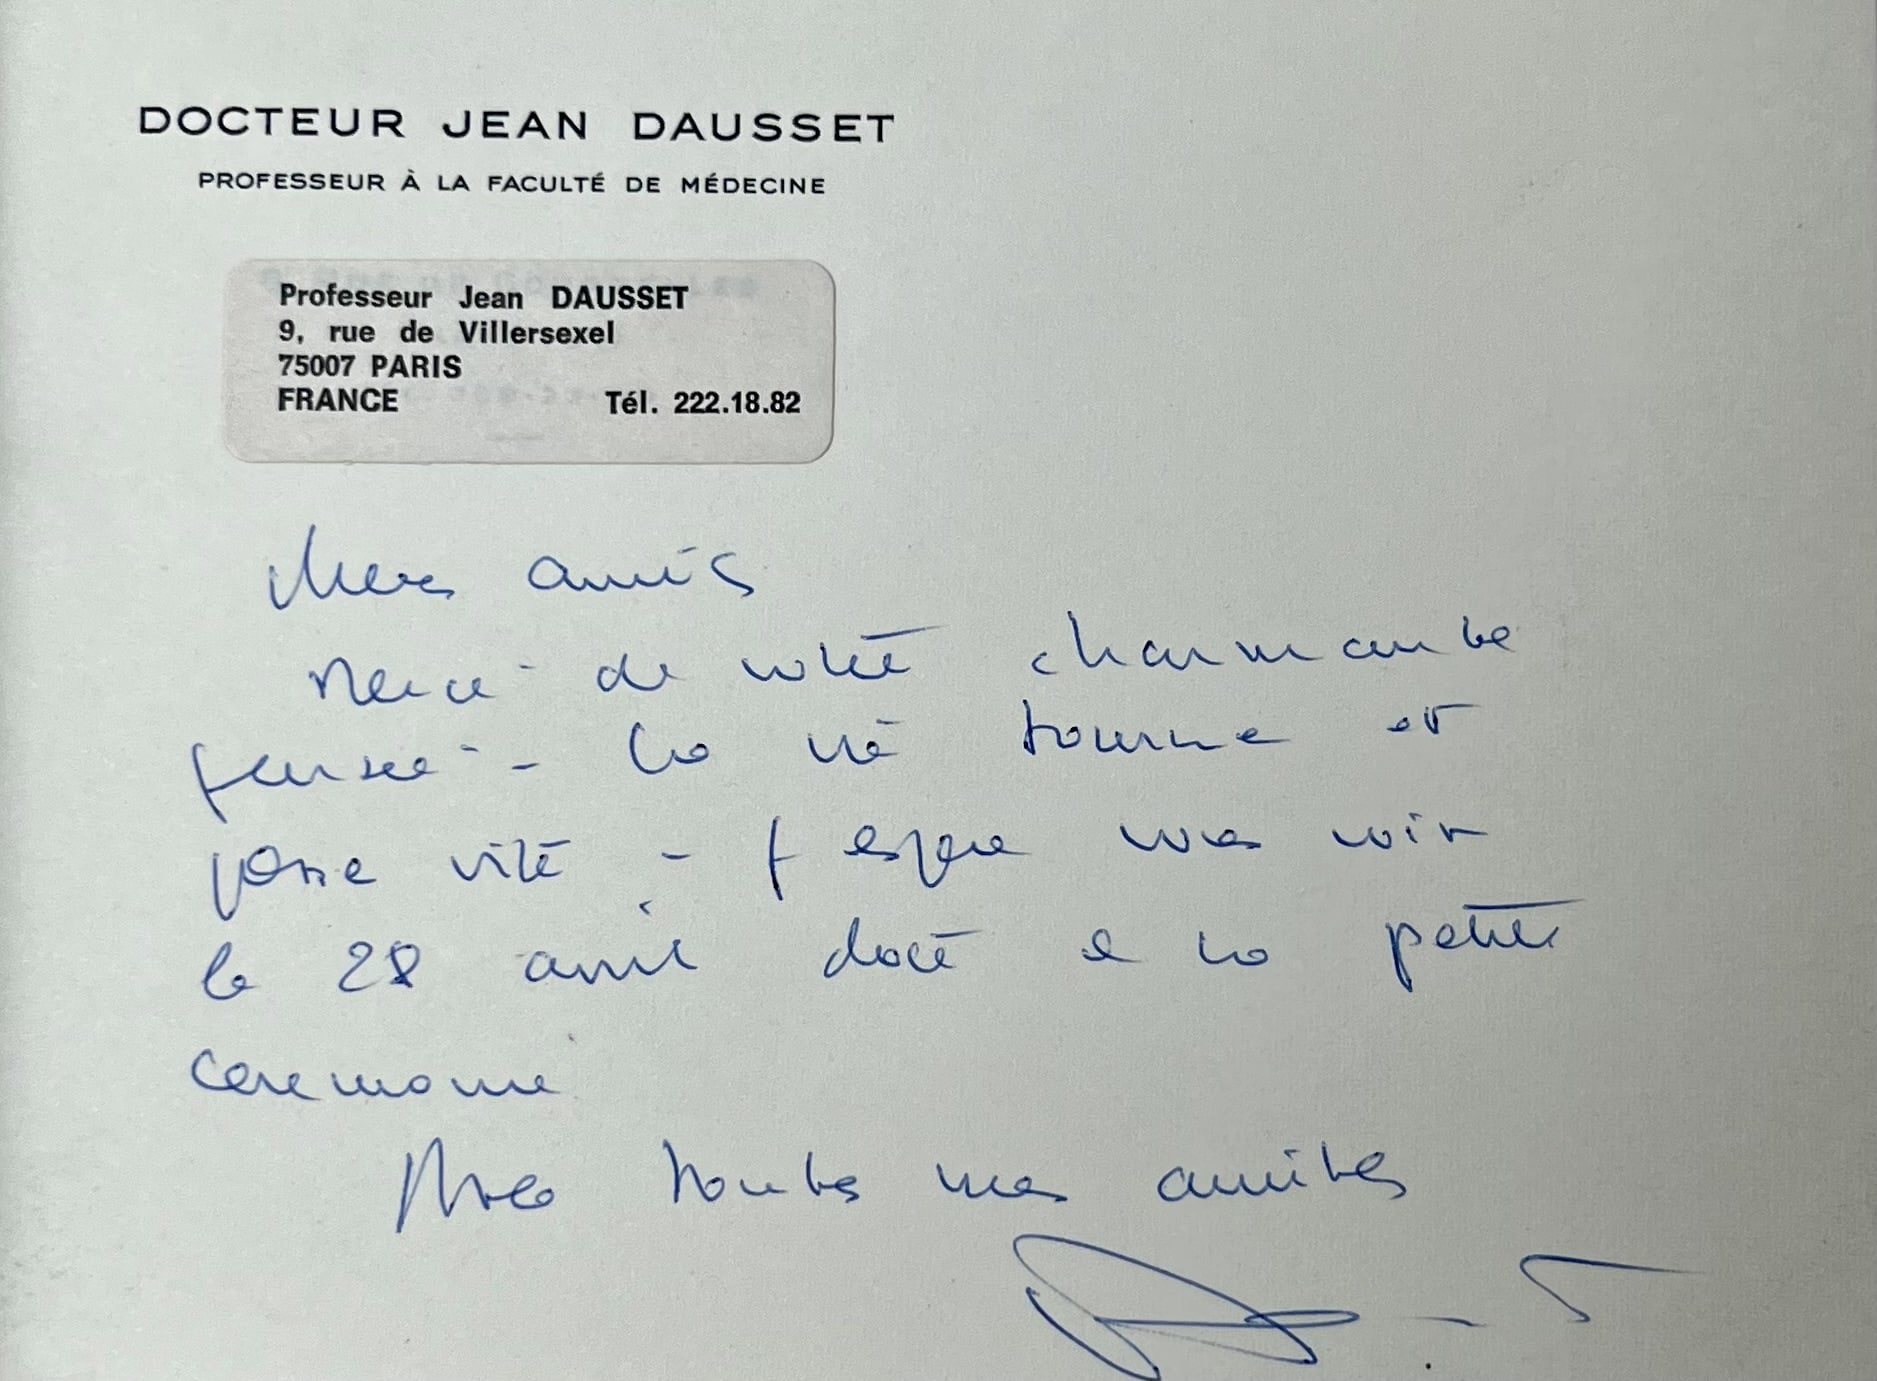 DOCTEUR JEAN DAUSSET
PROFESSEUR À LA FACULTÉ DE MÉDECINE
Professeur Jean DAUSSET
9, rue de Villersexel
75007 PARIS
FRANCE Tél. 222.18.82
Chers amis
Merci de votre charmante
pensée - La vie tourne et
passe vite - J espere vous voir
le 28 avril date de la petite
ceremonie
Avec toutes mes amitiés